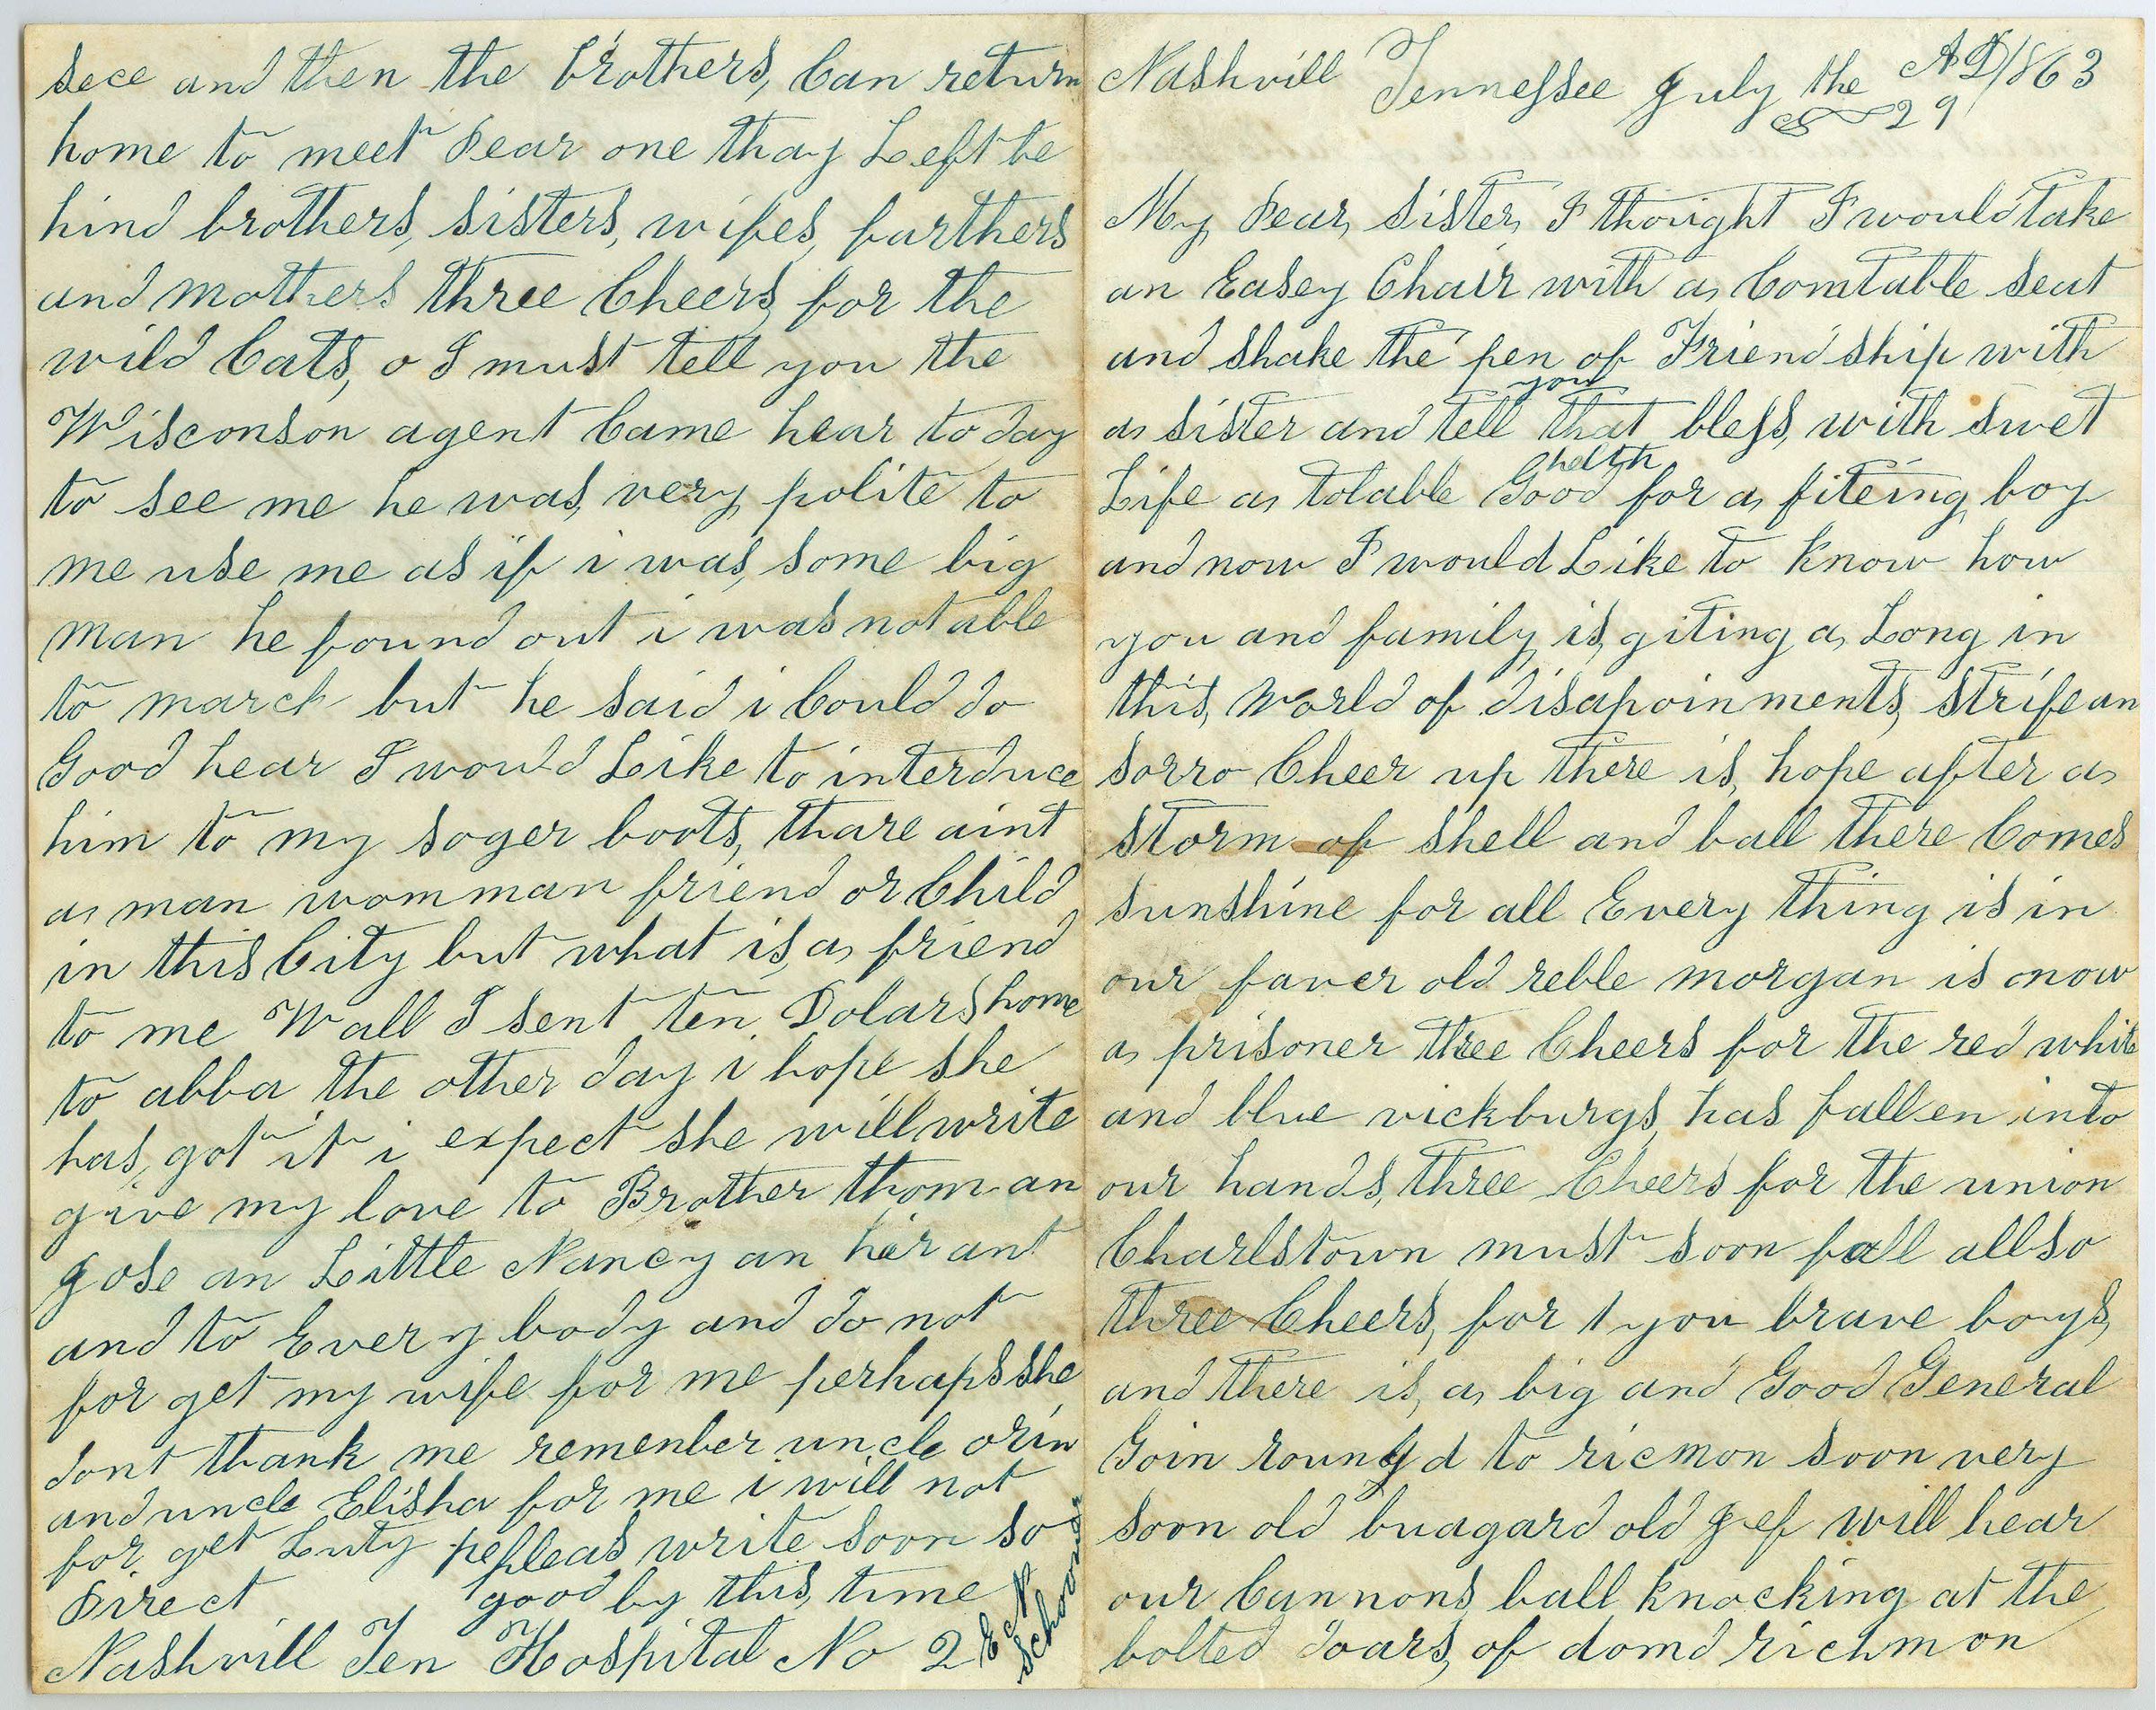 Nashvill Tennessee July the 29 AD/1863
My Dear Sister I thought I would take
an Easey Chair with a Comtable seat
and shake the pen of Friendship with
a sister and tell you that bless with swet
Life a tolable Good helth for a fiteing boy
and now I would Like to know how
you and family is giting a Long in
this world of disapoinments strife an
sorro Cheer up there is hope after a
storm of shell and ball there Comes
sunshine for all Every thing is in
our faver old reble morgan is now
a prisoner three Cheers for the red white
and blue vickburgs has fallen into
our hands, three Cheers for the union
Charlstown must soon fall allso
three Cheers, for you brave boys,
and there is a big and Good General
Goin round to ricmon soon very
soon old buagard old Jef will hear
our Cannons ball knocking at the
bolted doars, of domd richmon
sece and then the brothers, Can return
home to meet Dear one thay Left be
hind brothers, sisters, wifes, farthers
and mothers three Cheers for the
wild Cats, o I must tell you the
Wisconson agent Came hear to day
to see me he was very polite to
me use me as if i was some big
man he found out i was not able
to march but he said i Could do
Good hear I would Like to interduce
him to my soger boots, thare aint
a man womman friend or Child
in this City but what is a friend
to me Wall I sent ten Dolars home
to abba the other day i hope she
has got it i expect she will write
give my love to Brother thom an
gose an Little Nancy an her ant
and to Every body and do not
for get my wife for me perhaps she
dont thank me remenber uncle orin
and uncle Elisha for me i will not
for get Luty pleas write soon so
Direct good by this time
Nashvill Ten Hospital No 2